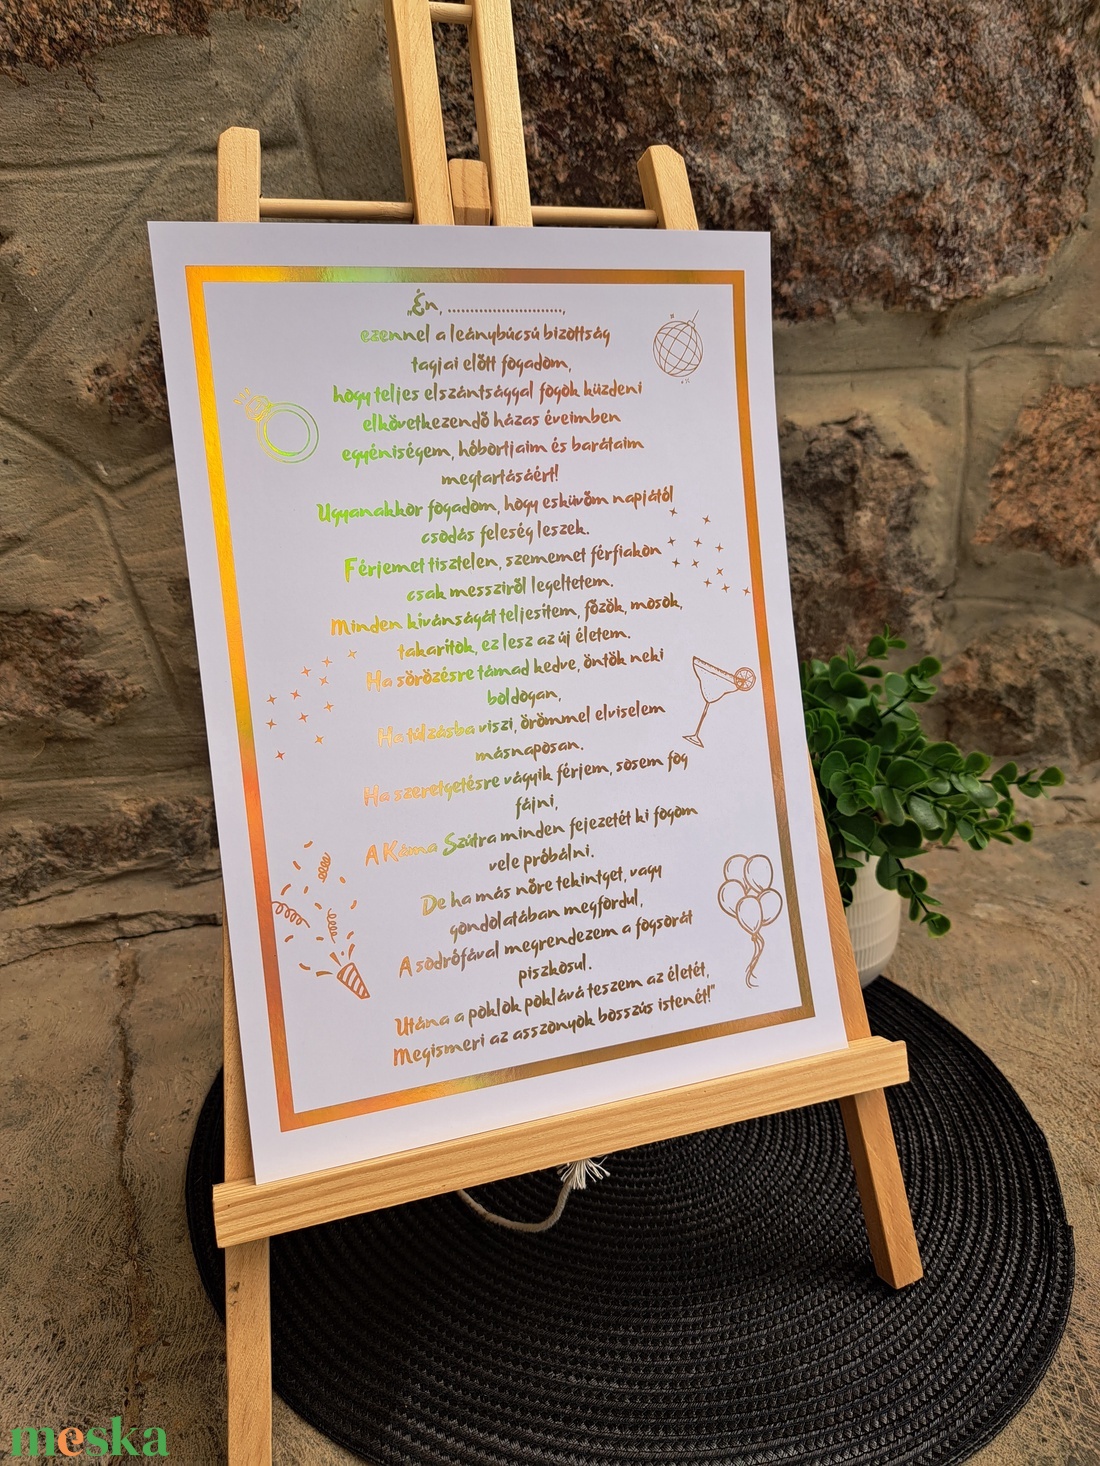 „Én, ..............................,
ezennel a leánybúcsú bizottság
tagjai előtt fogadom,
hogy teljes elszántsággal fogok küzdeni
elkövetkezendő házas éveimben
egyéniségem, hóbortjaim és barátaim
megtartásáért!
Ugyanakkor fogadom, hogy esküvőm napjától
csodás feleség leszek.
Férjemet tisztelen, szememet férfiakon
csak messziről legeltetem.
Minden kívánságát teljesítem, főzök, mosok,
takarítok, ez lesz az új életem.
Ha sörözésre támad kedve, öntök neki
boldogan,
Ha túlzásba viszi, örömmel elviselem
másnaposan.
Ha szeretgetésre vágyik férjem, sosem fog
fájni,
A Káma Szútra minden fejezetét ki fogom
vele próbálni.
De ha más nőre tekintget, vagy
gondolatában megfordul,
A sodrófával megrendezem a fogsorát
piszkosul.
Utána a poklok poklává teszem az életét,
Megismeri az asszonyok bosszús istenét!"
meska